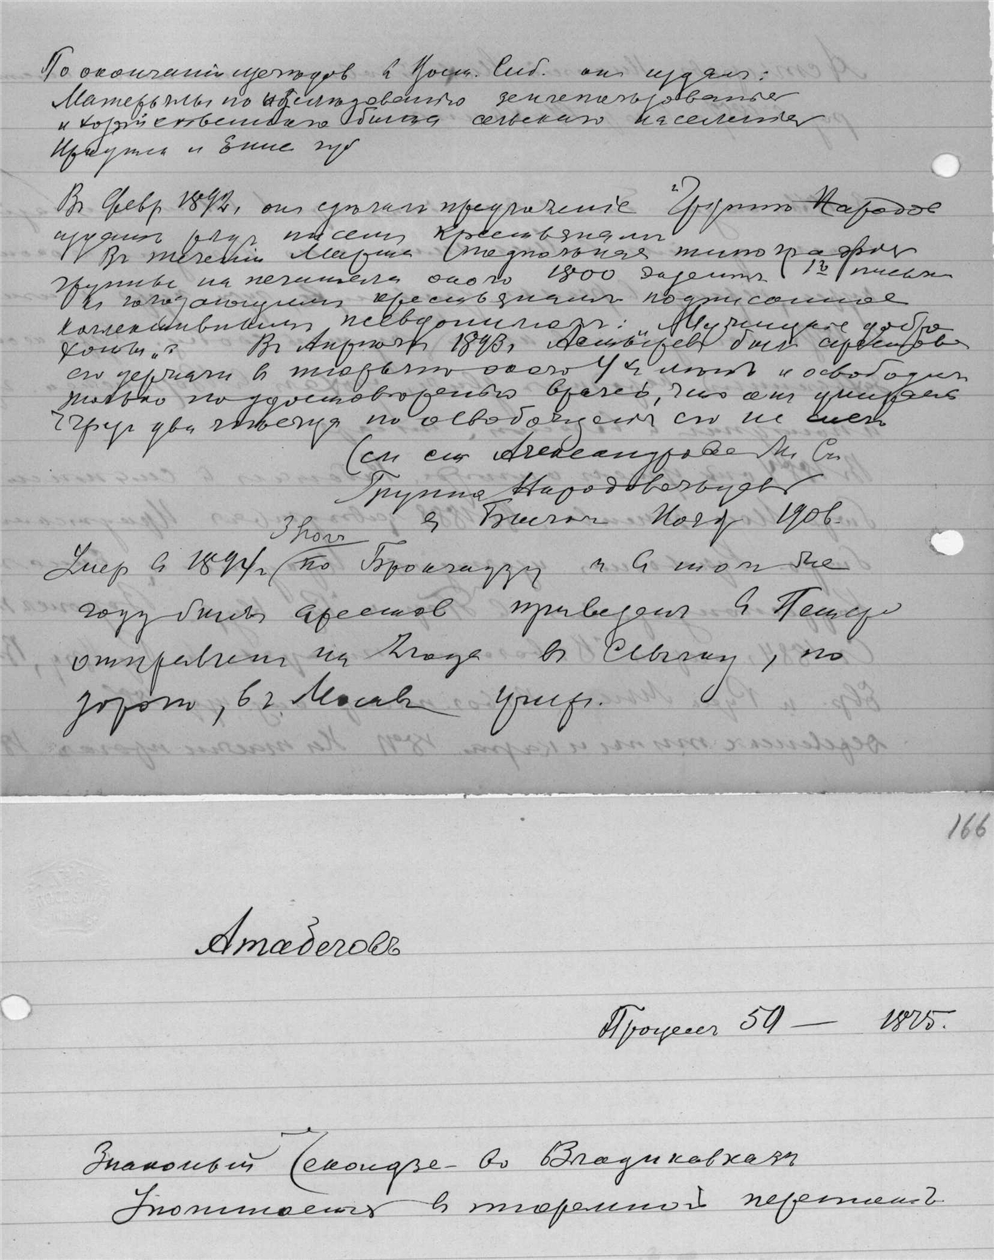 По окончании методов в Вост. Сиб. он издал:
Матерьялы по изследованию землепользования
и хозяйственного быта сельского населения
Иркутск и Енис губ
В Февр 1892, он сделал предложение "Группе Народов
издать ряд писем крестьянам
В течении Марта подпольная типография
группы напечатала около 1800 экземпл 1го письма
к голодающим крестьянам подписанное
коллективным псевдонимом: „Мужицкие добро
хоты". В Апреле 1893, Астырев был арестов
его держали в тюрьме около 4х и освободили
только по удостоверению врачей, что он умирает
Чрез два месяца по освобождении его не стало
(см ст Александрова М. Ск
Группа Народовольцев
в Былом Нояб 1906
Умер в 1894г по Брокгаузу и в том же
году был арестов приведен в Петерб
отправлен на года в ссылку, по
дороге, в г. Москве умер.
166
Атабеговъ
Процесс 50 — 1875.
Знакомый во Владикавказе
Упоминается в тюремной переписке